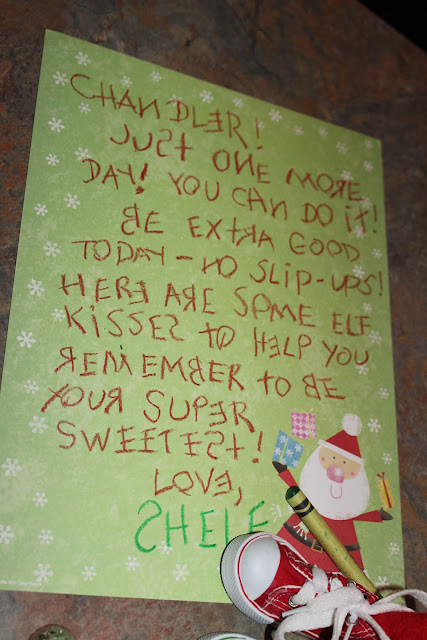 CHANDLER!
JUST ONE MORE
DAY! YOU CAN DO IT!
BE EXTRA GOOD
TODAY - NO SLIP-UPS!
HERE ARE SOME ELF
KISSES TO HELP YOU
REMEMBER TO BE
YOUR SUPER
SWEETEST!
LOVE,
SHELF